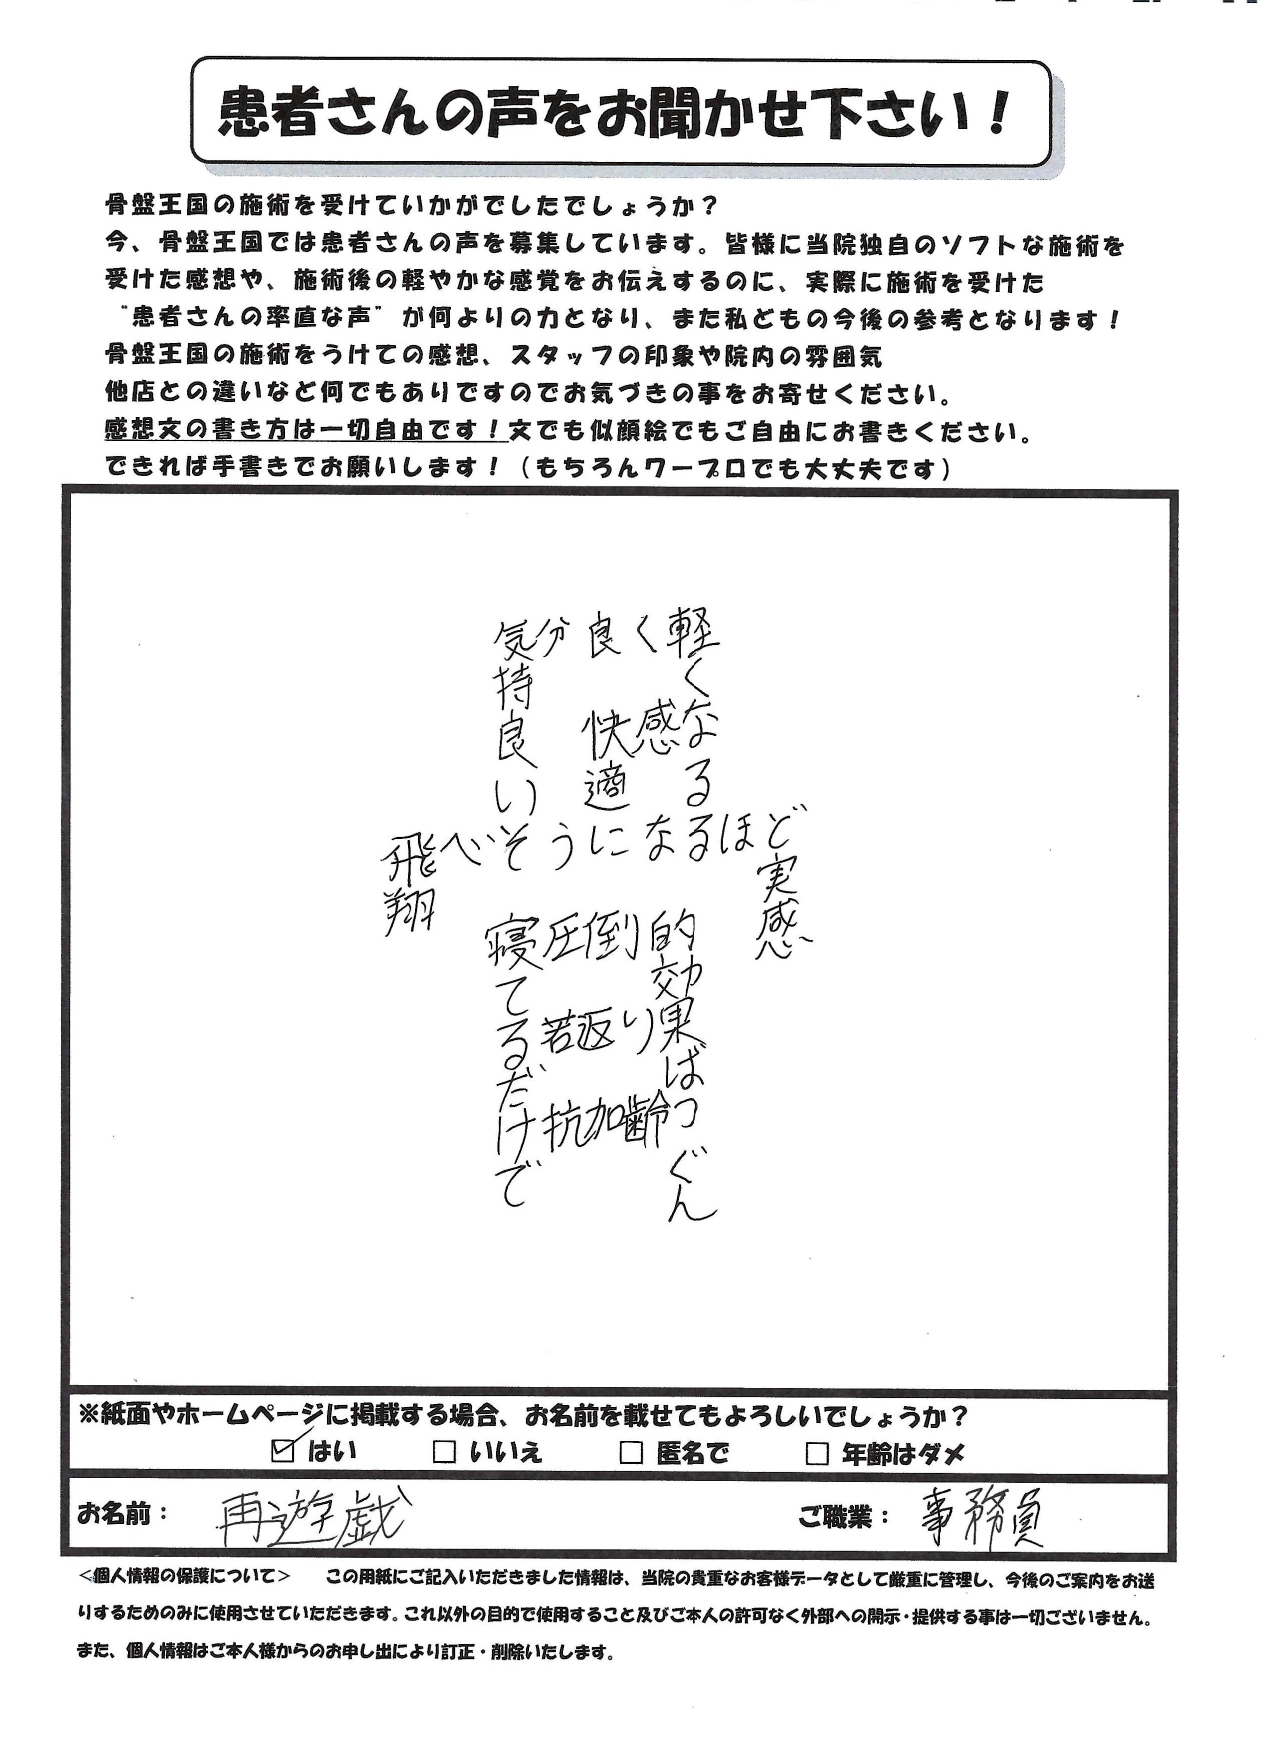 患者さんの声をお聞かせ下さい！
骨盤王国の施術を受けていかがでしたでしょうか？
今、骨盤王国では患者さんの声を募集しています。皆様に当院独自のソフトな施術を
受けた感想や、施術後の軽やかな感覚をお伝えするのに、実際に施術を受けた
“患者さんの率直な声”が何よりの力となり、また私どもの今後の参考となります！
骨盤王国の施術をうけての感想、スタッフの印象や院内の雰囲気
他店との違いなど何でもありですのでお気づきの事をお寄せください。
感想文の書き方は一切自由です！文でも似顔絵でもご自由にお書きください。
できれば手書きでお願いします！（もちろんワープロでも大丈夫です）
気分良く軽くなる
気持良い
快感
快適
飛べそうになるほど実感
飛翔
寝圧倒的効果ばつぐん
寝てるだけで
若返り
抗加齢
※紙面やホームページに掲載する場合、お名前を載せてもよろしいでしょうか？
☑ はい □ いいえ □ 匿名で □ 年齢はダメ
お名前： 再遊戯 ご職業： 事務員
＜個人情報の保護について＞ この用紙にご記入いただきました情報は、当院の貴重なお客様データとして厳重に管理し、今後のご案内をお送
りするためのみに使用させていただきます。これ以外の目的で使用すること及びご本人の許可なく外部への開示・提供する事は一切ございません。
また、個人情報はご本人様からのお申し出により訂正・削除いたします。